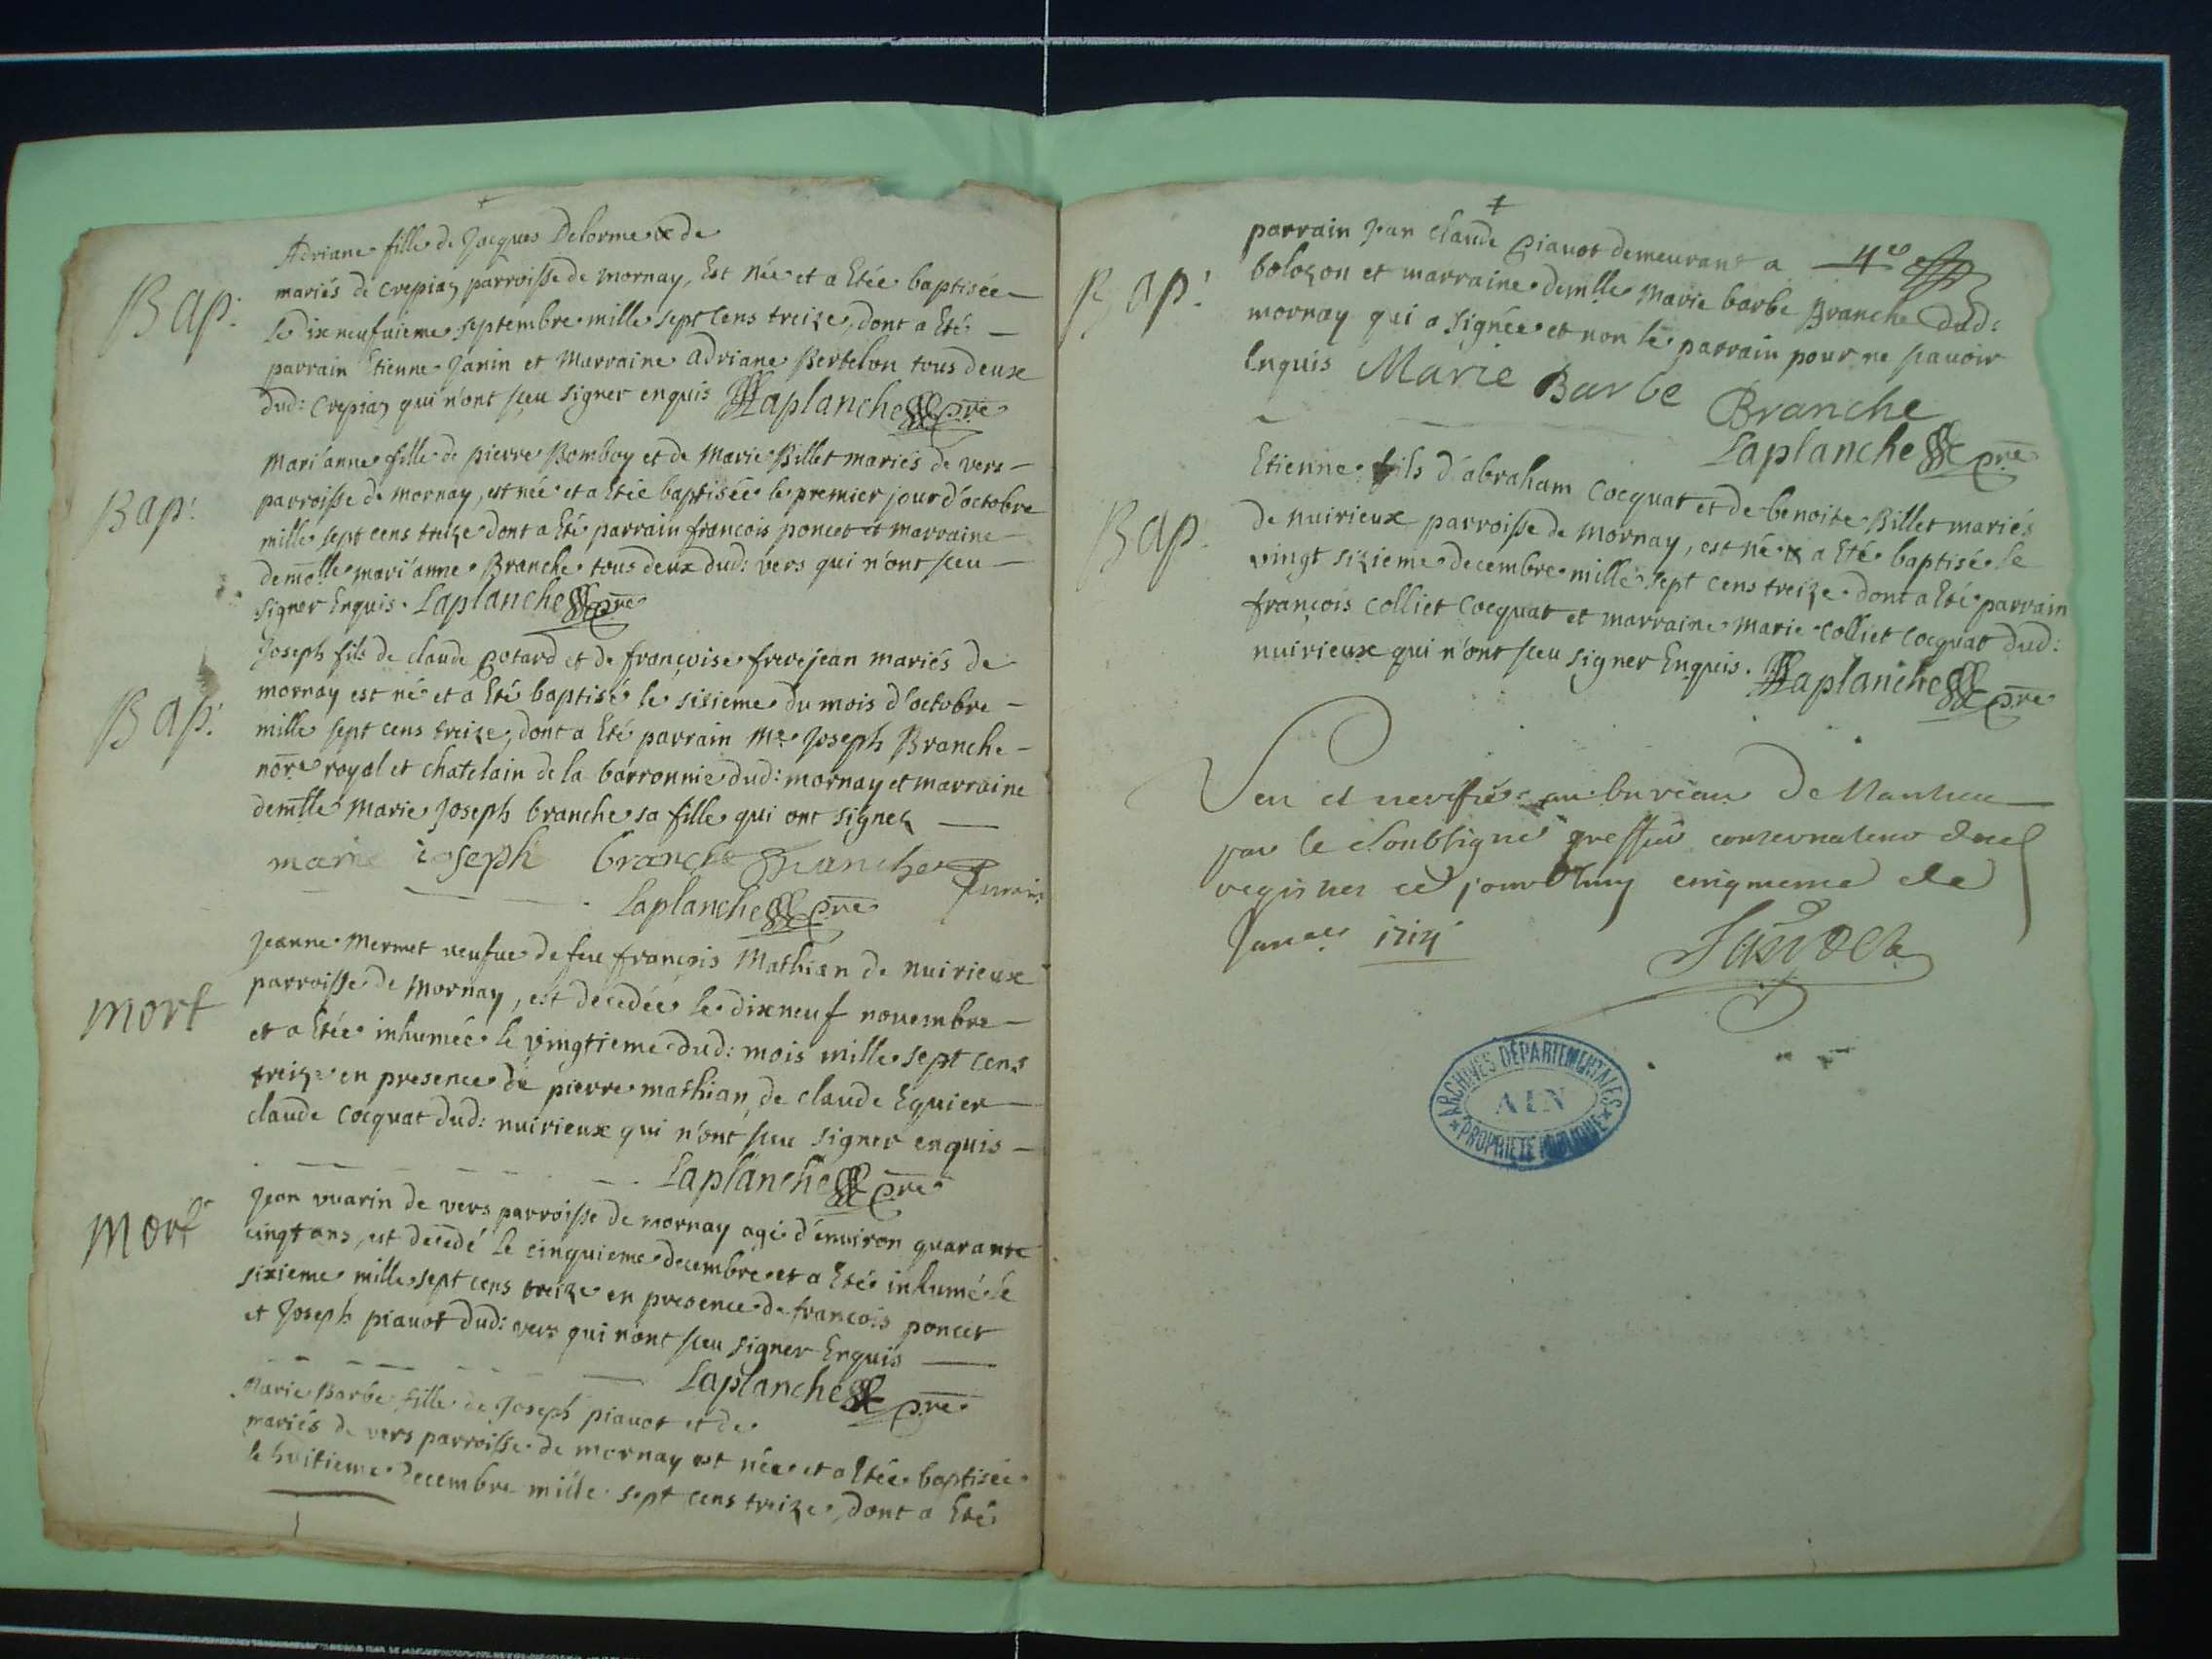 Adriane fille de Jacques Delorme & de
Bap:
mariés de crepiaz parroisse de mornay, Est née et a Etée baptisée
le dixneufuieme septembre mille sept cens treize, dont a Eté
parrain Etienne Janin et Marraine Adriane Bertelon tous deux
dud: Crepiaz qui n'ont sceu signer enquis Laplanche pre
Bap:
Mari'anne fille de pierre Bomboy et de Marie Billet mariés de vers
parroisse de mornay, est née et a Etée baptisée le premier jour d'octobre
mille sept cens treize dont a Eté parrain francois poncet et marraine
demolle mari'anne Branche tous deux dud: vers qui n'ont sceu
signer Enquis. Laplanche pre
Bap:
Joseph fils de claude Cotard et de françoise frerejean mariés de
mornay est né et a Eté baptisé le sixieme du mois d'octobre
mille sept cens treize, dont a Eté parrain Me Joseph Branche
nore royal et chatelain de la barronnie dud: mornay et marraine
demlle Marie Joseph branche sa fille qui ont signez
marie ioseph branche Branche
Laplanche pre
mort
Jeanne Mermet veufue de feu françois Mathian de nuirieux
parroisse de Mornay, est decedée le dixneuf nouembre
et a Etée inhumée le vingtieme dud: mois mille sept cens
treize en presence de pierre mathian, de claude Eguier
claude cocquat dud: nuirieux qui n'ont sceu signer enquis
Laplanche pre
mort
Jean vuarin de vers parroisse de mornay agé d'enuiron quarante
cinq ans, est decedé le cinquieme decembre et a Eté inhumé le
sixieme mille sept cens treize en presence de francois poncet
et Joseph piauot dud: vers qui n'ont sceu signer Enquis
Laplanche pre
Marie Barbe fille de Joseph piauot et de
mariés de vers parroisse de mornay est née et a Etée baptisée
le huitieme decembre mille sept cens treize, dont a Eté
parrain Jean Claude Piauot demeurant a
Bap:
bolozon et marraine demlle Marie barbe Branche dud:
mornay qui a signée et non le parrain pour ne scauoir
Enquis Marie Barbe Branche
Laplanche pre
Bap
Etienne fils d'abraham Cocquat et de benoite Billet mariés
de nuirieux parroisse de mornay, est né & a Eté baptisé le
vingt sixieme decembre mille sept cens treize dont a Eté parrain
françois colliet cocquat et marraine Marie colliet cocquat dud:
nuirieux qui n'ont sceu signer Enquis. Laplanche pre
Veu et verifié au bureau de Nantua
par le soubsigné greffier conservateur desd
registres ce jourdhuy cinqmeme de
Janvier 1714
ARCHIVES DÉPARTEMENTALES
AIN
PROPRIÉTÉ PUBLIQUE